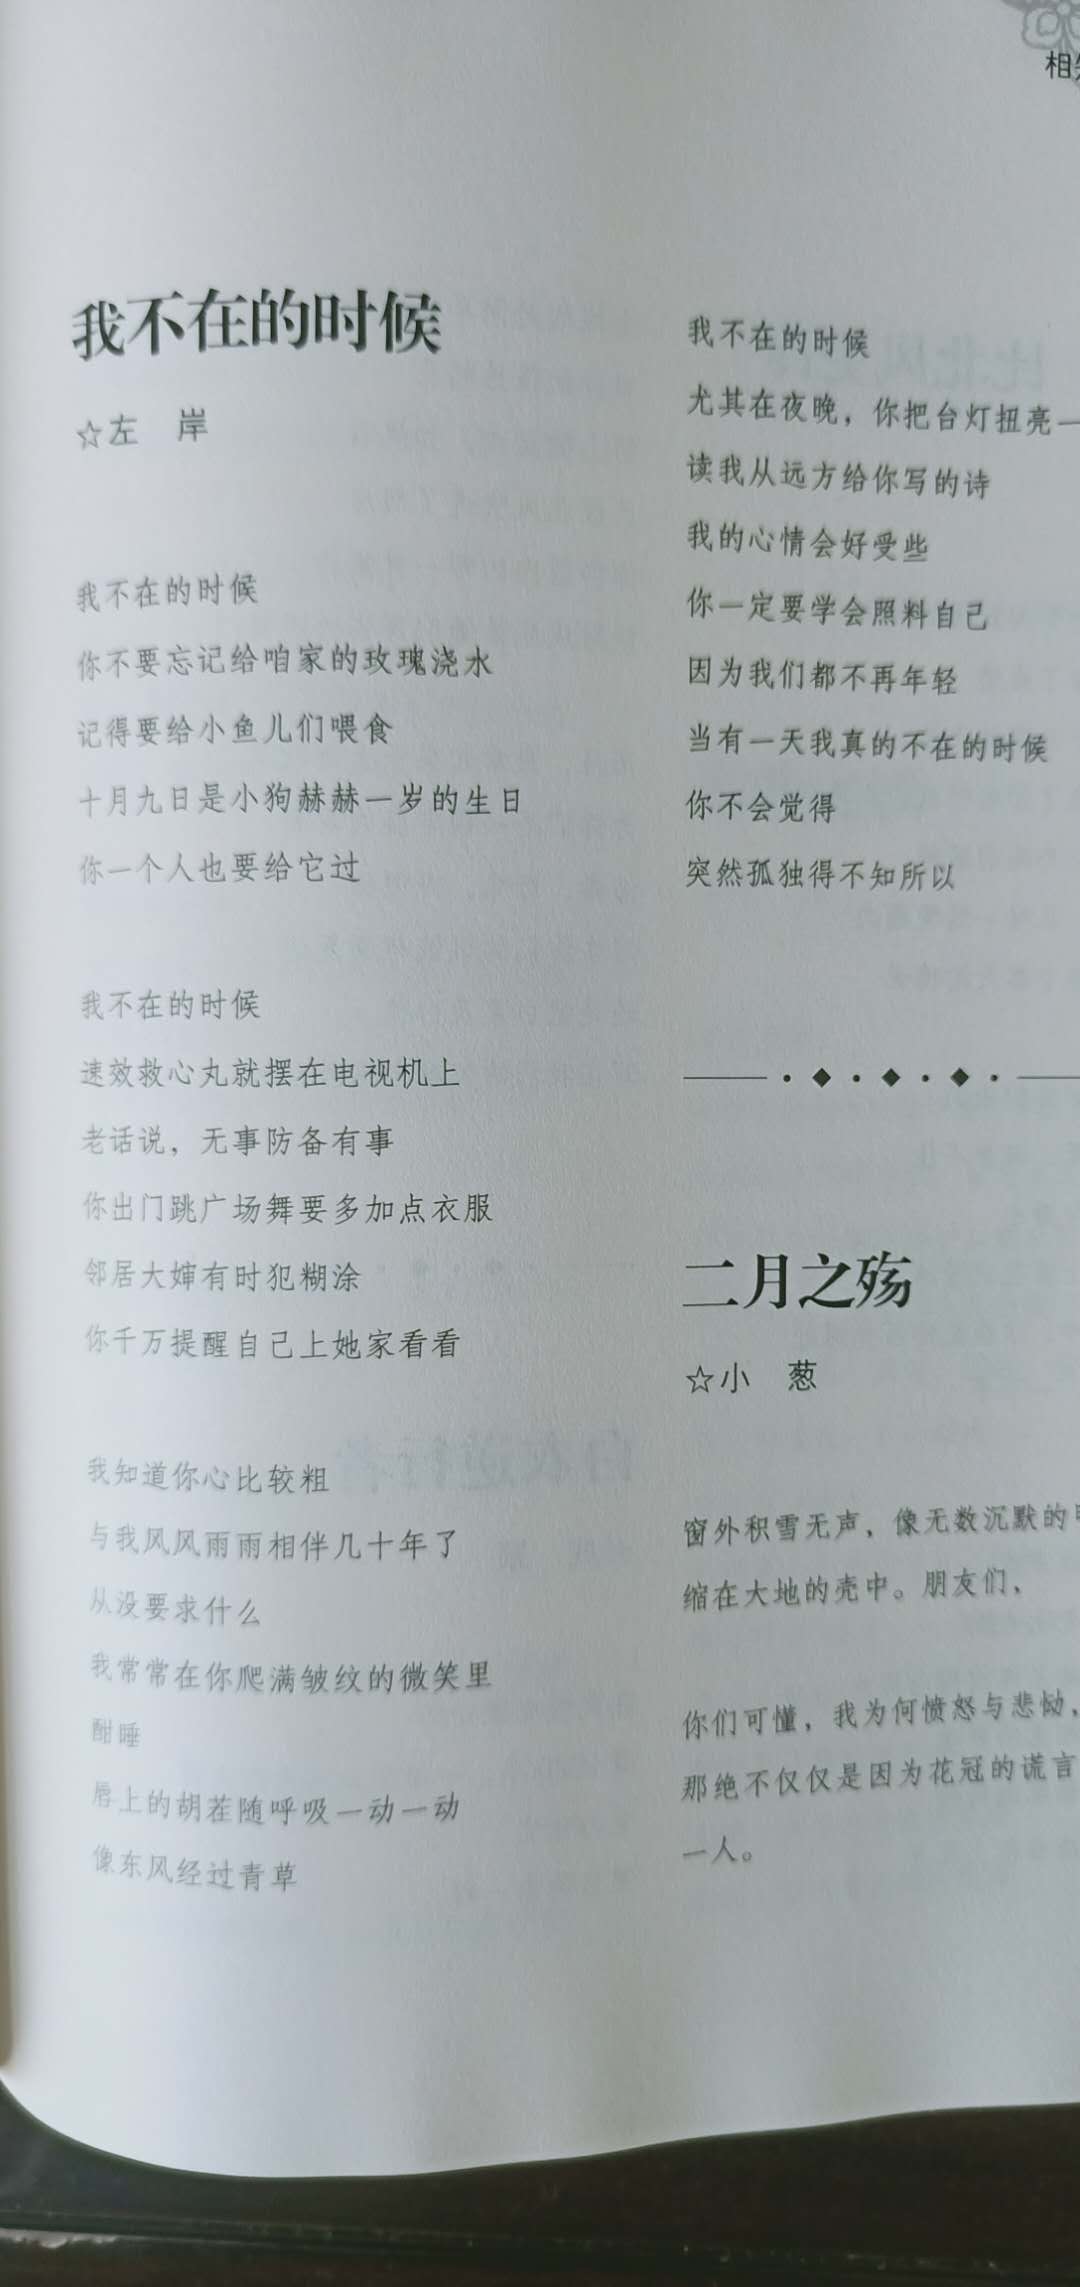 相
我不在的时候
☆左 岸
我不在的时候
你不要忘记给咱家的玫瑰浇水
记得要给小鱼儿们喂食
十月九日是小狗赫赫一岁的生日
你一个人也要给它过
我不在的时候
速效救心丸就摆在电视机上
老话说，无事防备有事
你出门跳广场舞要多加点衣服
邻居大婶有时犯糊涂
你千万提醒自己上她家看看
我知道你心比较粗
与我风风雨雨相伴几十年了
从没要求什么
我常常在你爬满皱纹的微笑里
酣睡
唇上的胡茬随呼吸一动一动
像东风经过青草
我不在的时候
尤其在夜晚，你把台灯扭亮一
读我从远方给你写的诗
我的心情会好受些
你一定要学会照料自己
因为我们都不再年轻
当有一天我真的不在的时候
你不会觉得
突然孤独得不知所以
二月之殇
☆小 葱
窗外积雪无声，像无数沉默的
缩在大地的壳中。朋友们，
你们可懂，我为何愤怒与悲恸，
那绝不仅仅是因为花冠的谎言
一人。